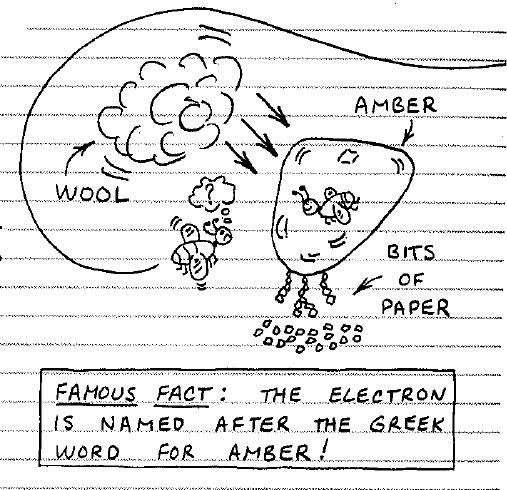 AMBER
WOOL
?
BITS
OF
PAPER
FAMOUS FACT: THE ELECTRON
IS NAMED AFTER THE GREEK
WORD FOR AMBER!